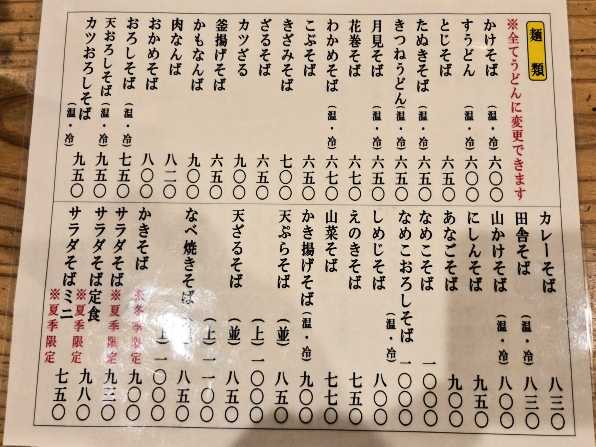 麺類
※全てうどんに変更できます
かけそば (温・冷) 六〇〇
すうどん (温・冷) 六〇〇
とじそば 六五〇
たぬきそば (温・冷) 六五〇
きつねうどん (温・冷) 六五〇
月見そば (温・冷) 六五〇
花巻そば 六七〇
わかめそば (温・冷) 六七〇
こぶそば 六五〇
きざみそば 七〇〇
ざるそば 六五〇
カツざる 九〇〇
釜揚げそば 六五〇
かもなんば 九〇〇
肉なんば 八二〇
おかめそば 八〇〇
おろしそば (温・冷) 七五〇
天おろしそば (温・冷) 九五〇
カツおろしそば (温・冷) 九五〇
カレーそば 八三〇
田舎そば (温・冷) 八三〇
山かけそば (温・冷) 八〇〇
にしんそば 九五〇
あなごそば 九〇〇
なめこそば 一〇〇〇
なめこおろしそば (温・冷) 一〇〇〇
しめじそば 八〇〇
えのきそば 七五〇
山菜そば 七七〇
かき揚げそば (温・冷) 九〇〇
天ぷらそば (並) 八五〇
(上) 一〇〇〇
天ざるそば (並) 八五〇
(上) 一一〇〇
なべ焼きそば 八五〇
(上) 一〇〇〇
かきそば ※冬季限定 九〇〇
サラダそば ※夏季限定 九三〇
サラダそば定食 ※夏季限定 九八〇
サラダそばミニ ※夏季限定 七五〇